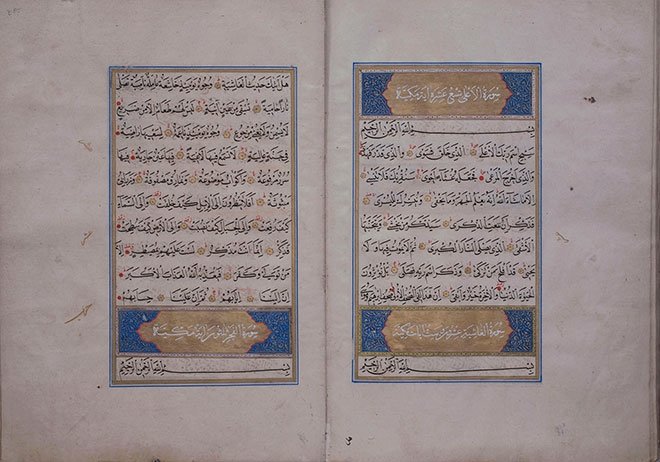 سورة الأعلى تسع عشرة آية مكية
بسم الله الرحمن الرحيم
سبح اسم ربك الأعلى الذي خلق فسوى والذي قدر فهدى
والذي أخرج المرعى فجعله غثاء أحوى سنقرئك فلا تنسى
إلا ما شاء الله إنه يعلم الجهر وما يخفى ونيسرك لليسرى
فذكر إن نفعت الذكرى سيذكر من يخشى ويتجنبها
الأشقى الذي يصلى النار الكبرى ثم لا يموت فيها ولا
يحيى قد أفلح من تزكى وذكر اسم ربه فصلى بل تؤثرون
الحيوة الدنيا والآخرة خير وأبقى إن هذا لفي الصحف الأولى صحف إبراهيم وموسى
سورة الغاشية مكية
بسم الله الرحمن الرحيم
هل أتيك حديث الغاشية وجوه يومئذ خاشعة عاملة ناصبة تصلى
نارا حامية تسقى من عين آنية ليس لهم طعام إلا من ضريع
لا يسمن ولا يغني من جوع وجوه يومئذ ناعمة لسعيها راضية
في جنة عالية لا تسمع فيها لاغية فيها عين جارية فيها
سرر مرفوعة وأكواب موضوعة ونمارق مصفوفة وزرابي
مبثوثة أفلا ينظرون إلى الإبل كيف خلقت وإلى السماء
كيف رفعت وإلى الجبال كيف نصبت وإلى الأرض كيف سطحت
فذكر إنما أنت مذكر لست عليهم بمصيطر إلا
من تولى وكفر فيعذبه الله العذاب الأكبر
إن إلينا إيابهم ثم إن علينا حسابهم
سورة الفجر آية مكية
بسم الله الرحمن الرحيم